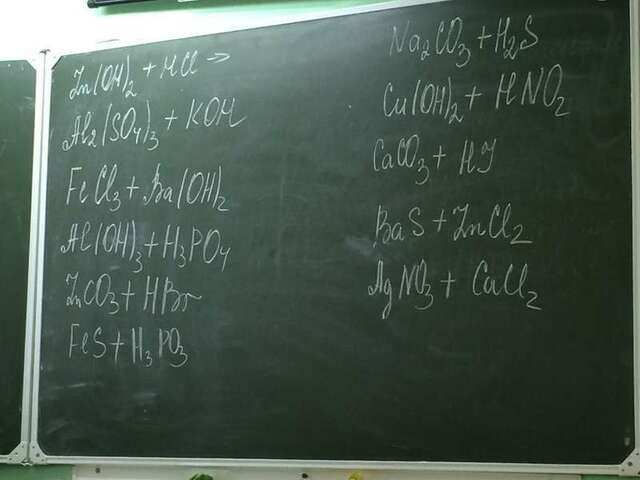 Zn(OH)₂ + HCl →
Al₂(SO₄)₃ + KOH
FeCl₃ + Ba(OH)₂
Al(OH)₃ + H₃PO₄
ZnCO₃ + HBr
FeS + H₃PO₃
Na₂CO₃ + H₂S
Cu(OH)₂ + HNO₂
CaCO₃ + HJ
BaS + ZnCl₂
AgNO₃ + CaCl₂